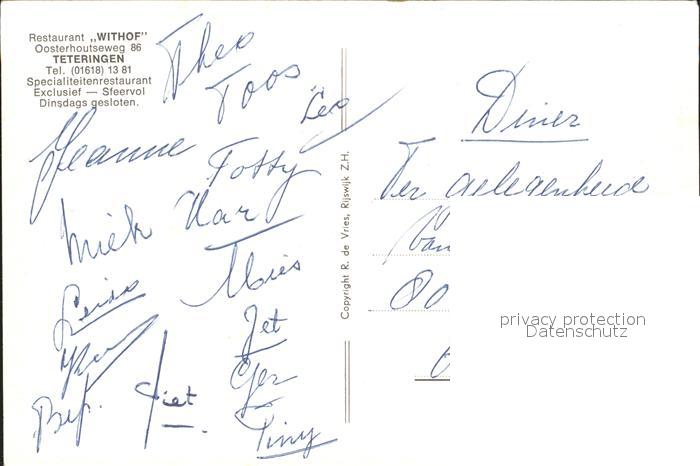 Restaurant „WITHOF"
Oosterhoutseweg 86
TETERINGEN
Tel. (01618) 13 81
Specialiteitenrestaurant
Exclusief — Sfeervol
Dinsdags gesloten.
Theo
Toos
Leo
Jeanne
Totty
Miek
Mies
Jet
Ger
Piet
Bep.
Tiny
Copyright R. de Vries, Rijswijk Z.H.
Diner
Ter gelegenheid
van
80
privacy protection
Datenschutz